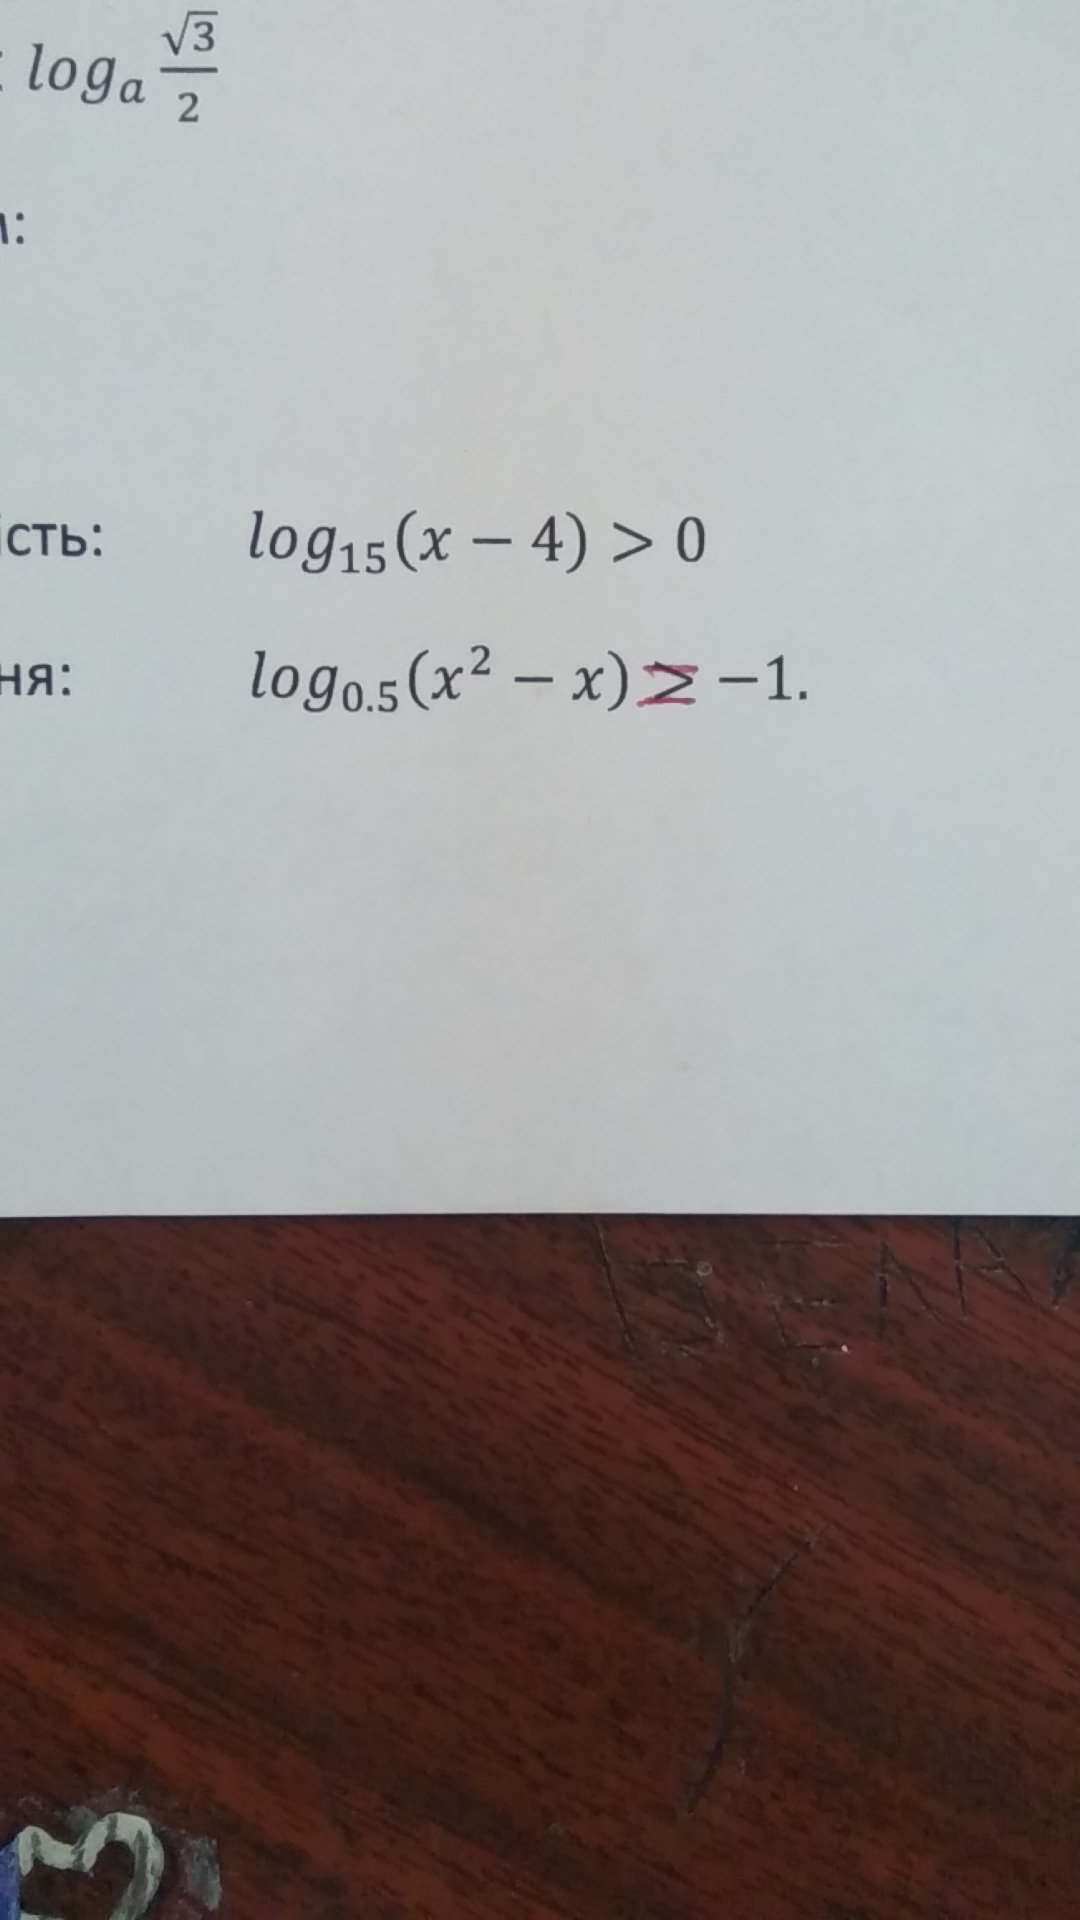 : logₐ √3/2
и:
ість: log₁₅(x − 4) > 0
ня: log₀.₅(x² − x) = −1.